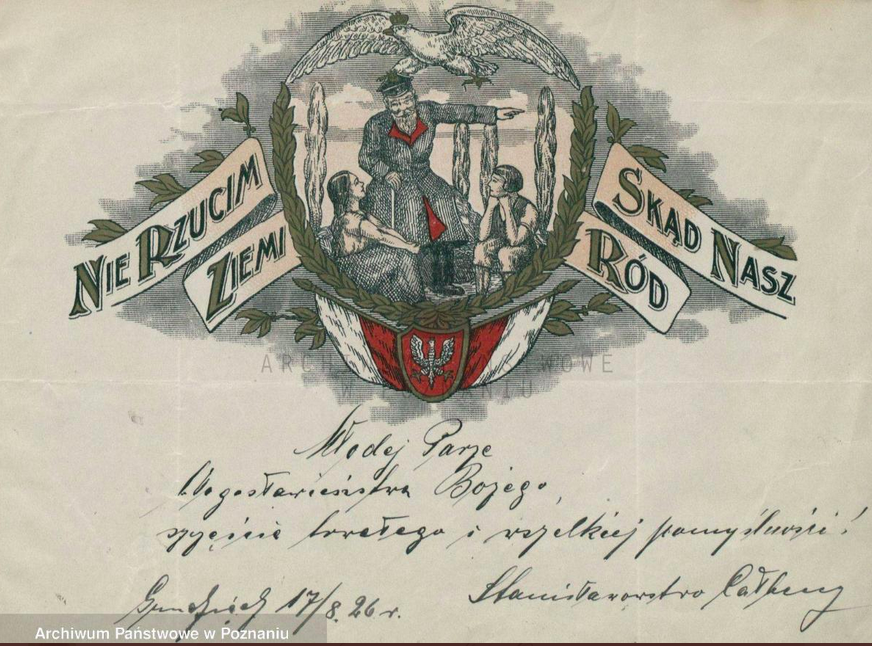 NIE RZUCIM
ZIEMI
SKĄD NASZ
RÓD
ARCHIWUM PAŃSTWOWE
W POZNANIU
Młodej Parze
błogosławieństwa Bożego,
szczęścia trwałego i wszelkiej pomyślności!
17/8. 26 r.
Stanisławostwo
Archiwum Państwowe w Poznaniu